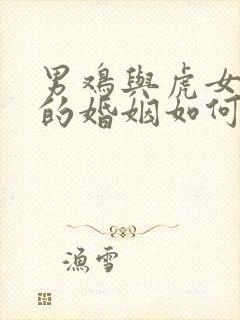 男鸡與虎女
的婚姻如何
漁雪